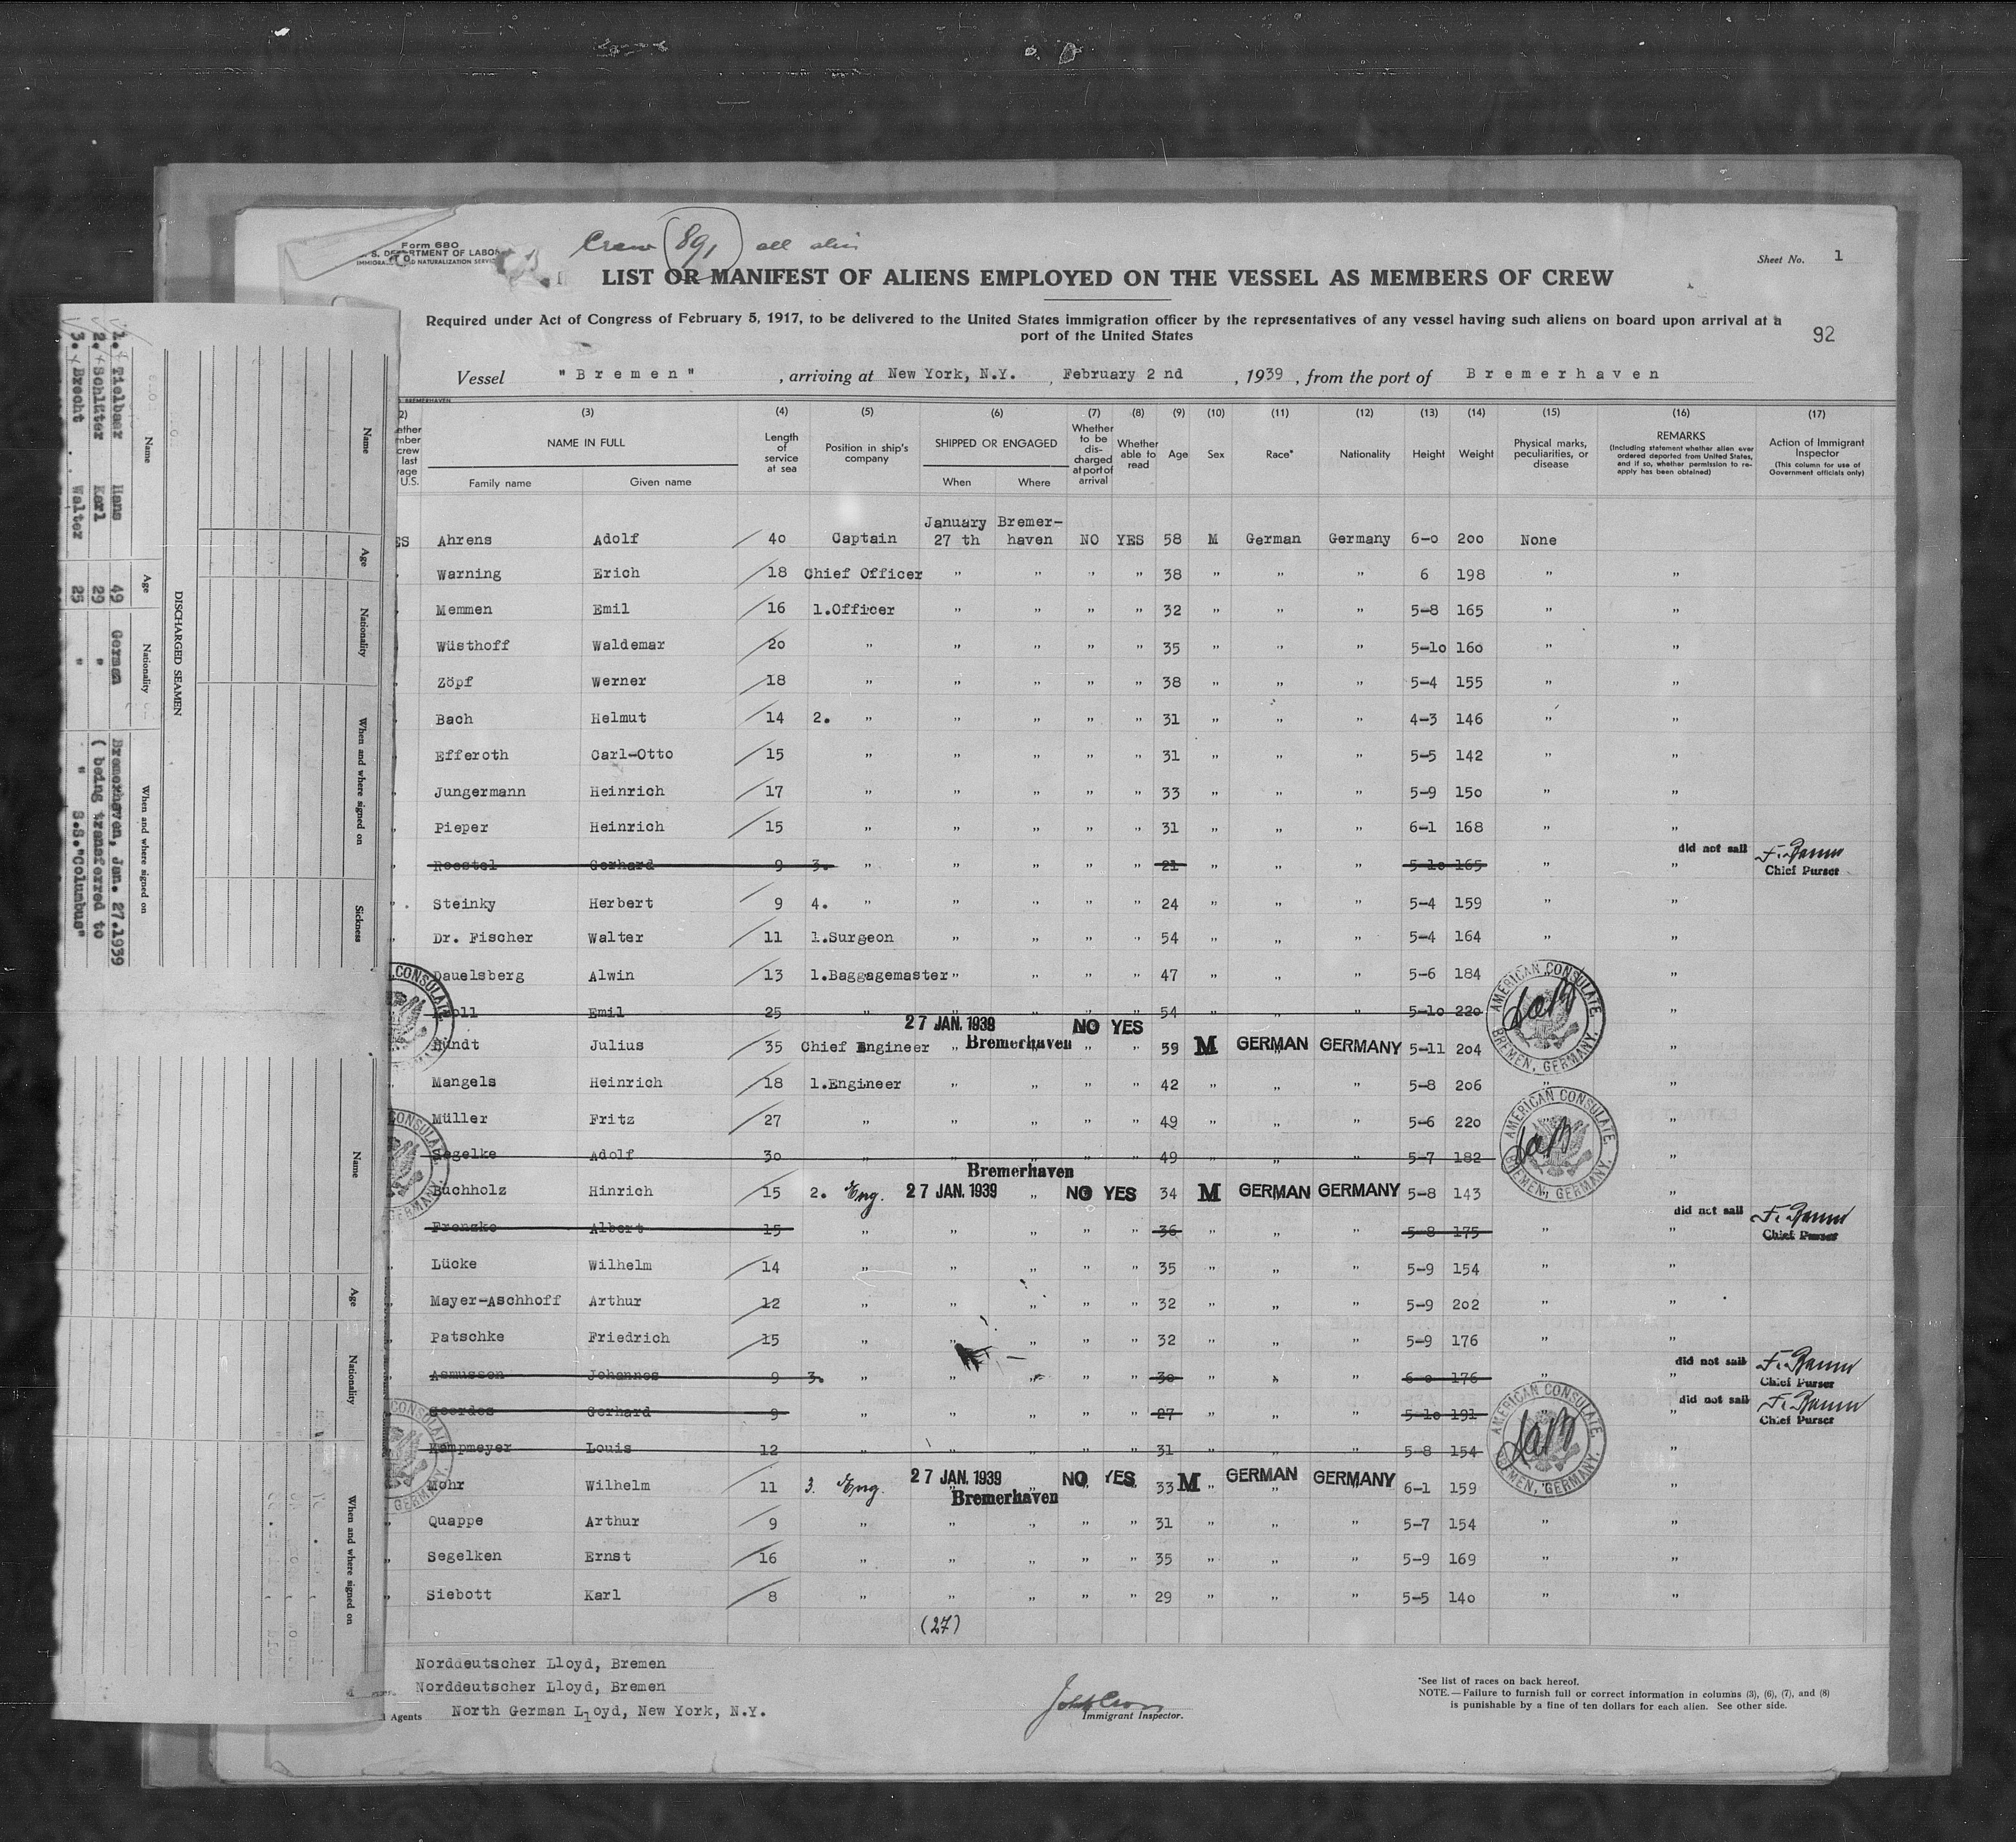 Crew 891 all alien
Form 680
U. S. DEPARTMENT OF LABOR
IMMIGRATION AND NATURALIZATION SERVICE
Sheet No. 1
LIST OR MANIFEST OF ALIENS EMPLOYED ON THE VESSEL AS MEMBERS OF CREW
Required under Act of Congress of February 5, 1917, to be delivered to the United States immigration officer by the representatives of any vessel having such aliens on board upon arrival at a
port of the United States
92
Vessel "Bremen" , arriving at New York, N.Y. , February 2 nd , 1939 , from the port of Bremerhaven
(3) (4) (5) (6) (7) (8) (9) (10) (11) (12) (13) (14) (15) (16) (17)
NAME IN FULL
Family name Given name
Length of service at sea
Position in ship's company
SHIPPED OR ENGAGED
When Where
Whether to be discharged at port of arrival
Whether able to read
Age
Sex
Race*
Nationality
Height
Weight
Physical marks, peculiarities, or disease
REMARKS
(Including statement whether alien ever ordered deported from United States, and if so, whether permission to reapply has been obtained)
Action of Immigrant Inspector
(This column for use of Government officials only)
January Bremer-
ES Ahrens Adolf 40 Captain 27 th haven NO YES 58 M German Germany 6-0 200 None
Warning Erich 18 Chief Officer " " " " 38 " " " 6 198 " "
Memmen Emil 16 1.Officer " " " " 32 " " " 5-8 165 " "
Wüsthoff Waldemar 20 " " " " " 35 " " " 5-10 160 " "
Zöpf Werner 18 " " " " " 38 " " " 5-4 155 " "
Bach Helmut 14 2. " " " " " 31 " " " 4-3 146 " "
Efferoth Carl-Otto 15 " " " " " 31 " " " 5-5 142 " "
Jungermann Heinrich 17 " " " " " 33 " " " 5-9 150 " "
Pieper Heinrich 15 " " " " " 31 " " " 6-1 168 " "
Roestel Gerhard 9 3. " " " " " 21 " " " 5-10 165 " " did not sail
Chief Purser
Steinky Herbert 9 4. " " " " " 24 " " " 5-4 159 " "
Dr. Fischer Walter 11 1.Surgeon " " " " 54 " " " 5-4 164 " "
Dauelsberg Alwin 13 1.Baggagemaster " " " " 47 " " " 5-6 184 " "
Emil 25 " " " 54 5-10 220 "
27 JAN. 1939 NO YES
Hündt Julius 35 Chief Engineer " Bremerhaven " " 59 M GERMAN GERMANY 5-11 204 "
Mangels Heinrich 18 1.Engineer " " " " 42 " " " 5-8 206 " "
Müller Fritz 27 " " " " " 49 " " " 5-6 220 "
Segelke Adolf 30 " " " " " 49 " " " 5-7 182 "
Bremerhaven
Buchholz Hinrich 15 2. Eng. 27 JAN. 1939 " NO YES 34 M GERMAN GERMANY 5-8 143 "
Frenzke Albert 15 " " " " " 36 " " " 5-8 175 " " did not sail
Chief Purser
Lücke Wilhelm 14 " " " " " 35 " " " 5-9 154 " "
Mayer-Aschhoff Arthur 12 " " " " " 32 " " " 5-9 202 " "
Patschke Friedrich 15 " " " " " 32 " " " 5-9 176 " "
Asmussen Johannes 9 3. " " " " " 30 " " " 6-0 176 " " did not sail
Chief Purser
Geerdes Gerhard 9 " " " " " 27 " " " 5-10 191 " " did not sail
Chief Purser
Kempmeyer Louis 12 " " " " " 31 " " " 5-8 154 "
Mohr Wilhelm 11 3. Eng. 27 JAN. 1939 NO YES 33 M " GERMAN GERMANY 6-1 159 "
Bremerhaven
Quappe Arthur 9 " " " " " 31 " " " 5-7 154 " "
Segelken Ernst 16 " " " " " 35 " " " 5-9 169 " "
Siebott Karl 8 " " " " " 29 " " " 5-5 140 " "
(27)
AMERICAN CONSULATE.
BREMEN, GERMANY.
AMERICAN CONSULATE.
BREMEN, GERMANY.
AMERICAN CONSULATE.
BREMEN, GERMANY.
Norddeutscher Lloyd, Bremen
Norddeutscher Lloyd, Bremen
Agents North German Lloyd, New York, N.Y.
Immigrant Inspector.
*See list of races on back hereof.
NOTE.—Failure to furnish full or correct information in columns (3), (6), (7), and (8)
is punishable by a fine of ten dollars for each alien. See other side.
Name Age Nationality When and where signed on Sickness
DISCHARGED SEAMEN
Name Age Nationality When and where signed on
1. Tielbar Hans 49 German Bremerhaven, Jan. 27.1939
2. Schlüter Karl 29 " ( being transferred to
3. Brecht Walter 25 " " S.S."Columbus"
Name Age Nationality When and where signed on